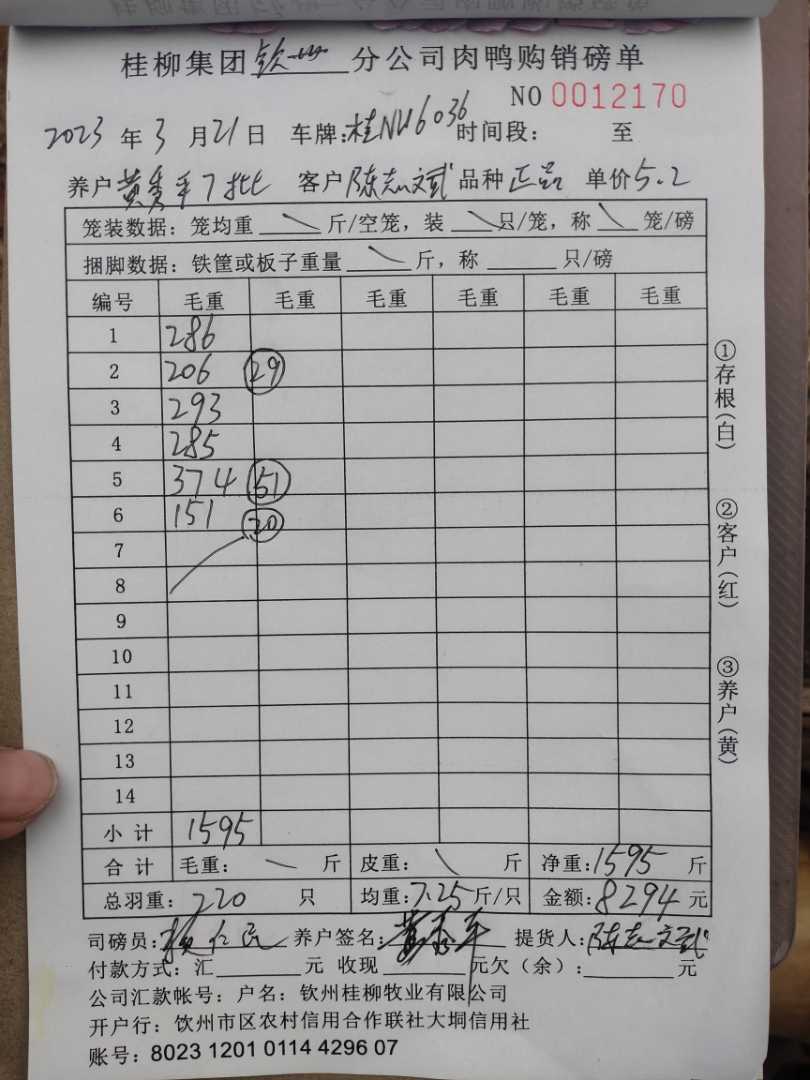 桂柳集团钦州分公司肉鸭购销磅单
NO 0012170
2023 年 3 月 21 日 车牌:桂NU6036 时间段: 至
养户 黄秀平7批 客户 陈志斌 品种 正品 单价 5.2
笼装数据: 笼均重 斤/空笼, 装 只/笼, 称 笼/磅
捆脚数据: 铁筐或板子重量 斤, 称 只/磅
编号 毛重 毛重 毛重 毛重 毛重 毛重
1 286
2 206 29
3 293
4 285
5 374 51
6 151 20
7
8
9
10
11
12
13
14
小计 1595
合计 毛重: 斤 皮重: 斤 净重:1595 斤
总羽重: 220 只 均重:7.25 斤/只 金额:8294 元
司磅员: 养户签名:黄秀平 提货人:陈志斌
付款方式: 汇 元 收现 元欠(余): 元
公司汇款帐号: 户名: 钦州桂柳牧业有限公司
开户行: 饮州市区农村信用合作联社大垌信用社
账号: 8023 1201 0114 4296 07
①存根(白)
②客户(红)
③养户(黄)